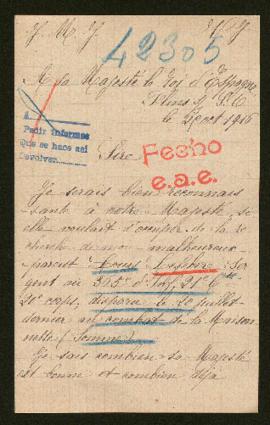 J. M. J.
42305
A Sa Majesté le Roi d'Espagne
le 2 oct 1916
A
Pedir informes
Que se hace así
Devolver
Sire
Fecho
e.a.e.
Je serais bien reconnais
sante à votre Majesté, si
elle voulait s'occuper de la re
cherche de mon malheureux
parent Ser
gent au d'Inf. 21e Cie
21e corps, disparu le 20 juillet
dernier au combat de la Maison
nette (Somme).
Je sais combien sa Majesté
est bonne et combien déjà